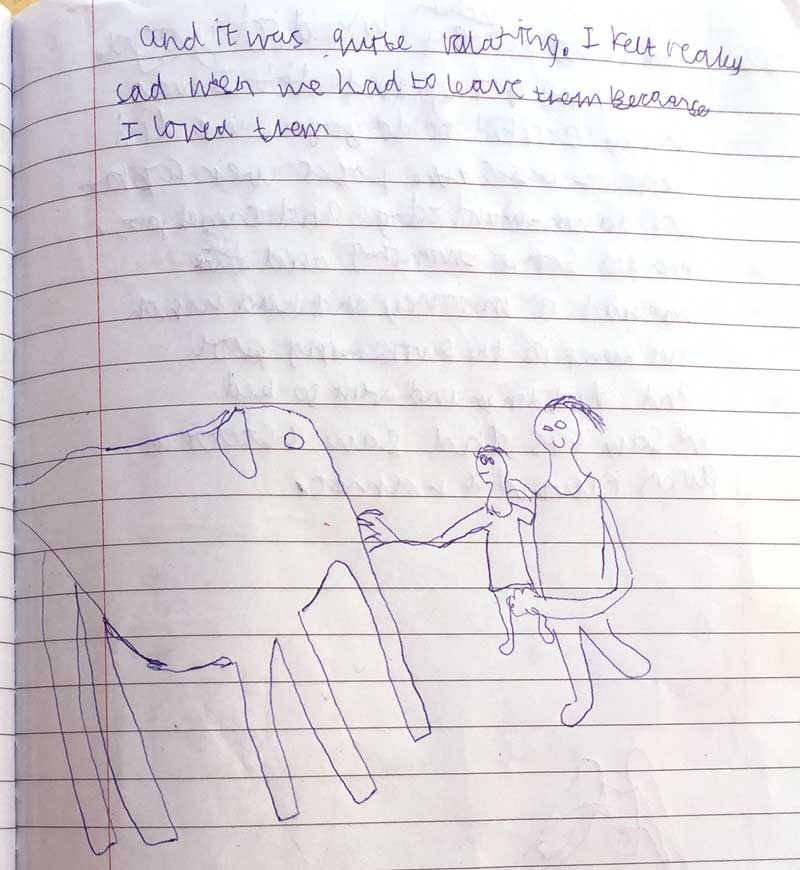 and it was quite relating. I felt really
sad when we had to leave them Because
I loved them